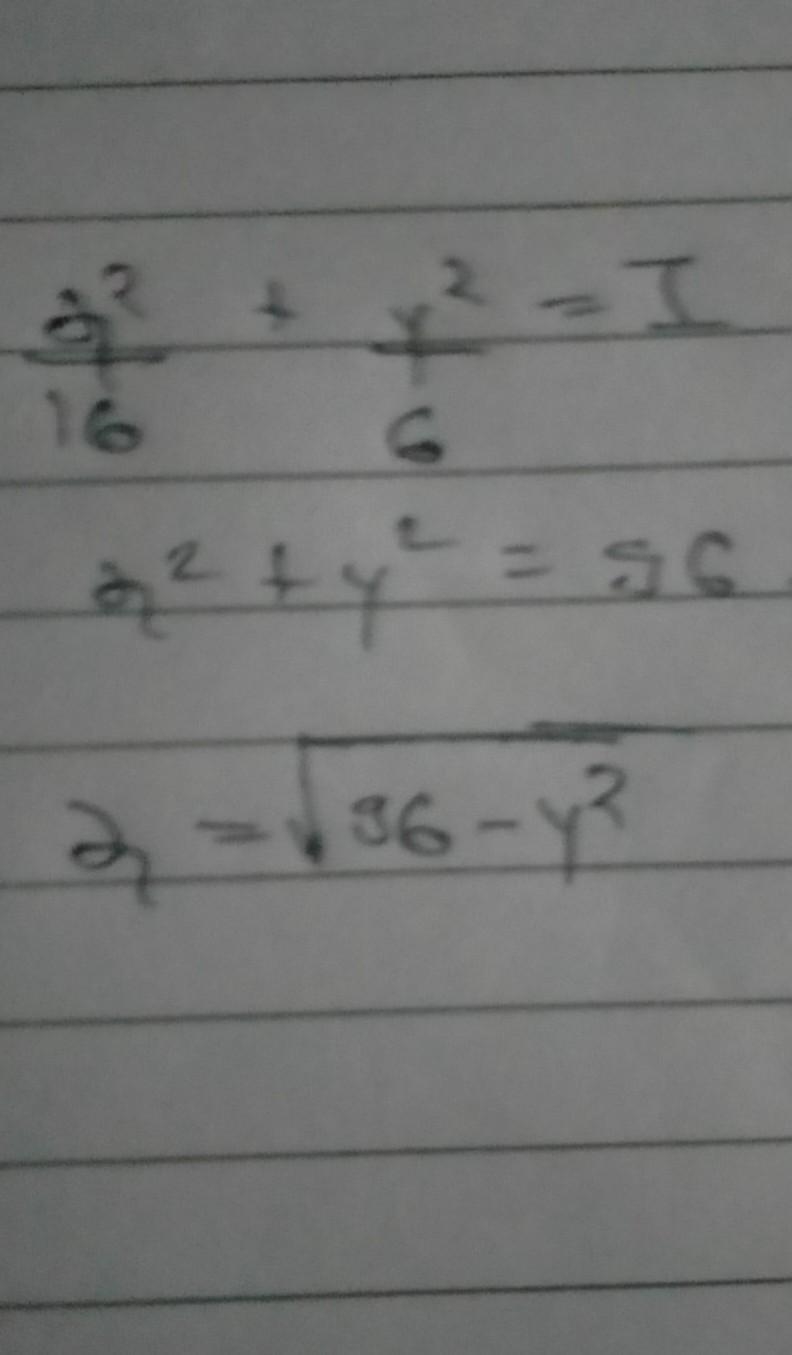 x²/16 + y²/6 = I
x² + y² = 96
x = √96 - y²